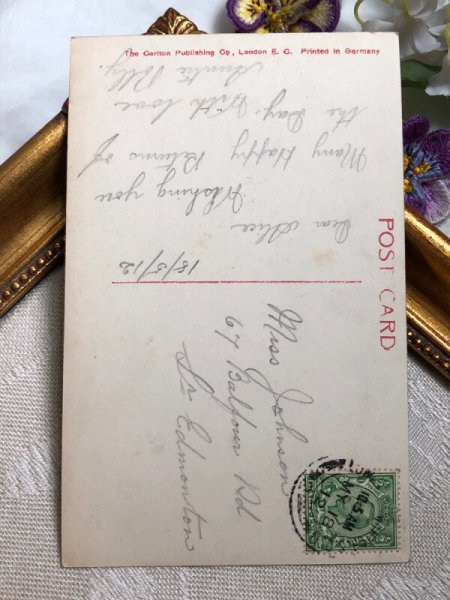 The Carlton Publishing Co, London E. C. Printed in Germany
POST CARD
18/5/12
Dear Alice
Wishing you
Many Happy Returns of
the Day. With love
Auntie Polly.
Miss Johnson
67 Balfour Rd
Lr Edmonton
10.5 AM
MY 18